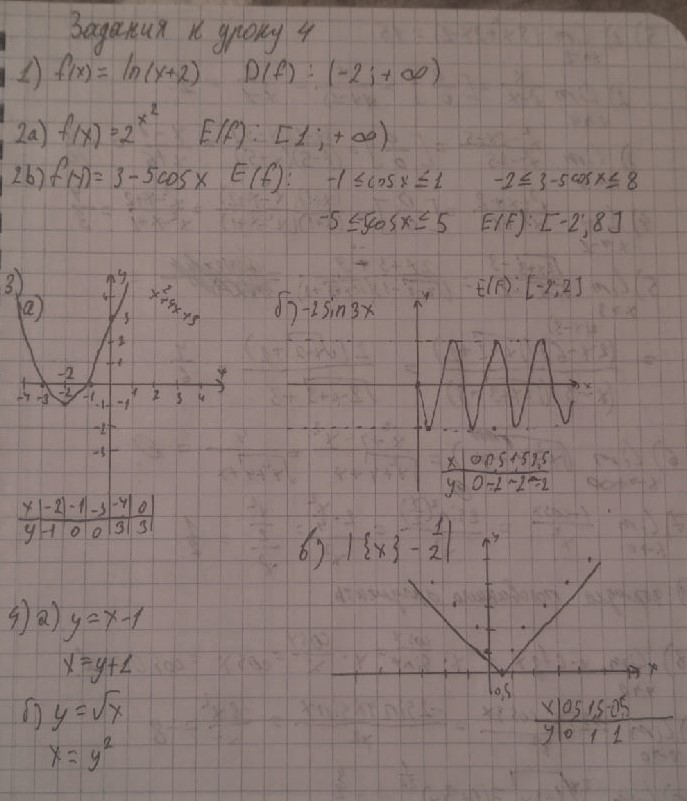 Задания к уроку 4
1) f(x) = ln(x+2) D(f) : (-2; +∞)
2a) f(x) = 2^x² E(f) : [1; +∞)
2b) f(x) = 3 - 5cosx E(f): -1 ≤ cosx ≤ 1 -2 ≤ 3-5cosx ≤ 8
-5 ≤ 5cosx ≤ 5 E(f): [-2; 8]
3)
а)
y
x²+4x+3
3
2
1
-2
-4 -3 -2 -1 1 2 3 4
-1 -1
-2
-3
x | -2 | -1 | -3 | -4 | 0
y | -1 | 0 | 0 | 3 | 3
б) -2sin3x
E(f): [-2; 2]
y
x
x | 0
y | 0
в) |{x} - 1/2|
y
x
0,5
x | 0,5 1,5 -0,5
y | 0 1 1
4) а) y = x-1
x = y+1
б) y = √x
x = y²